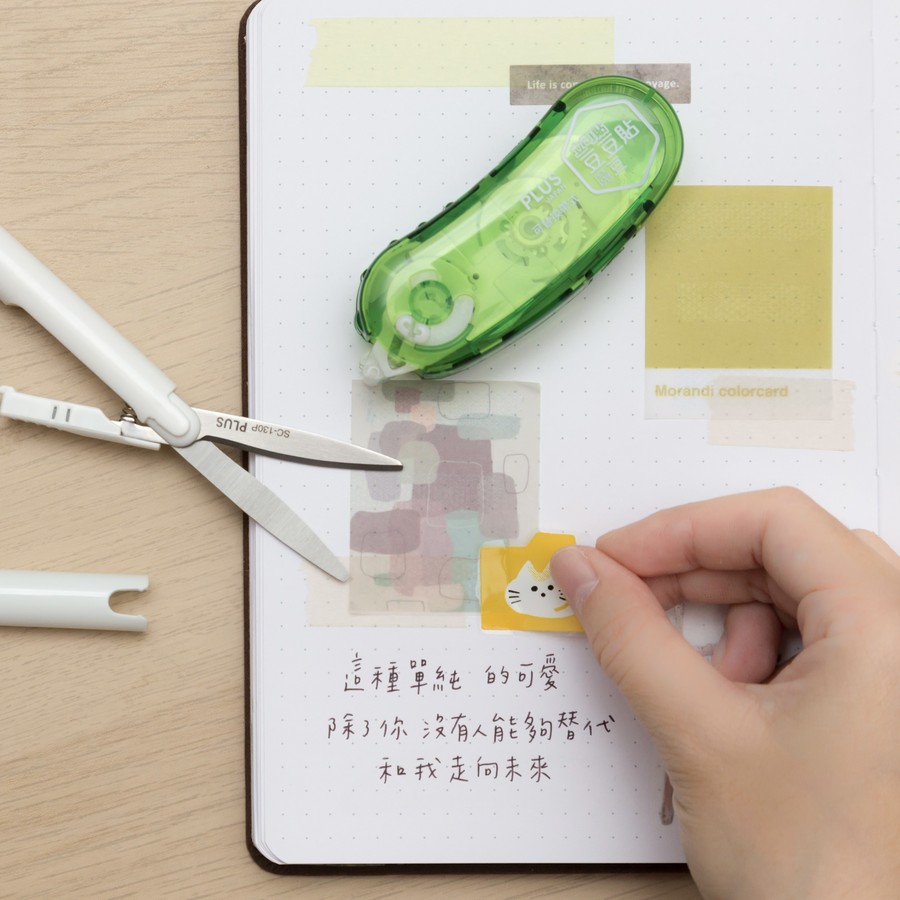 Life is
PLUS
豆豆貼
Morandi colorcard
SC-130P PLUS
這種單純 的可愛
除了你 沒有人能夠替代
和我走向未來